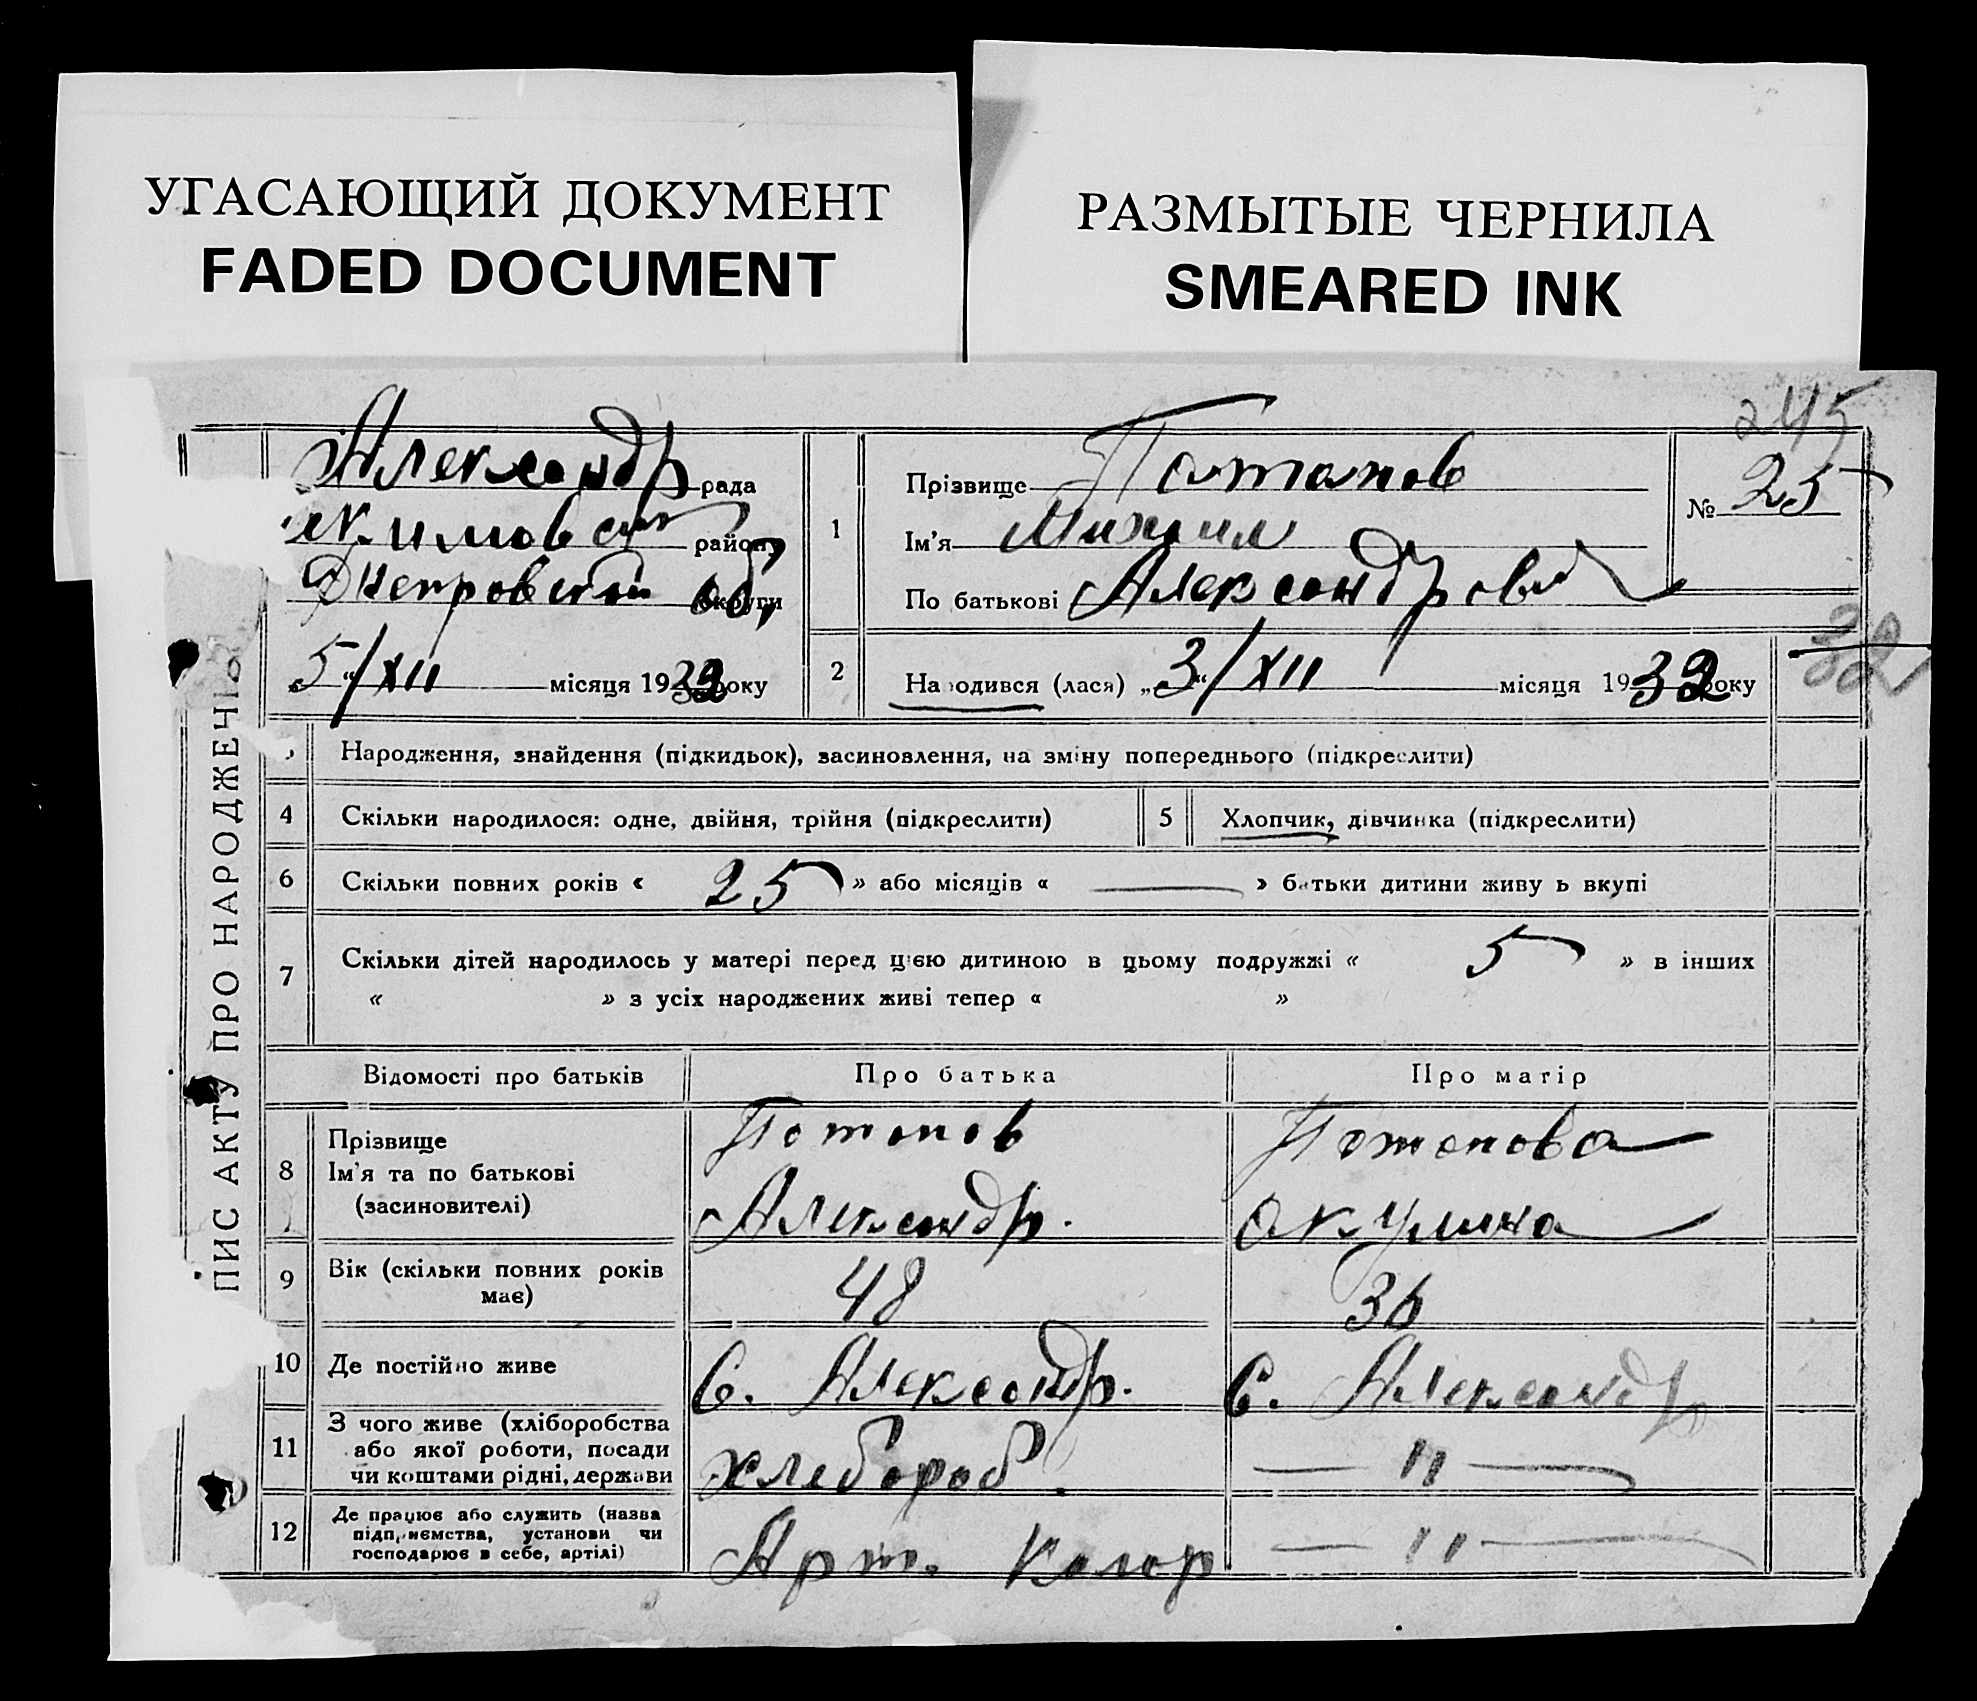 УГАСАЮЩИЙ ДОКУМЕНТ
FADED DOCUMENT
РАЗМЫТЫЕ ЧЕРНИЛА
SMEARED INK
245
ПИС АКТУ ПРО НАРОДЖЕН
Александр рада
Акимовск району
Днепровской об, округи
„5“/XII місяця 1932 року
1
Прізвище Потапов
Ім'я Михаил
По батькові Александрови
№ 25
2
Народився (лася) „3“/XII місяця 1932 року
32
Народження, знайдення (підкидьок), засиновлення, на зміну попереднього (підкреслити)
4 Скільки народилося: одне, двійня, трійня (підкреслити)
5 Хлопчик, дівчинка (підкреслити)
6 Скільки повних років « 25 » або місяців « — » батьки дитини живуть вкупі
7 Скільки дітей народилось у матері перед цією дитиною в цьому подружжі « 5 » в інших
« » з усіх народжених живі тепер « »
Відомості про батьків Про батька Про матір
8 Прізвище
Ім'я та по батькові
(засиновителі)
Потапов
Александр.
Потапова
Акулина
9 Вік (скільки повних років
має)
48
36
10 Де постійно живе
С. Александр.
С. Александр
11 З чого живе (хліборобства
або якої роботи, посади
чи коштами рідні, держави
хлебороб.
— " —
12 Де працює або служить (назва
підприємства, установи чи
господарює в себе, артілі)
Арт.
— " —